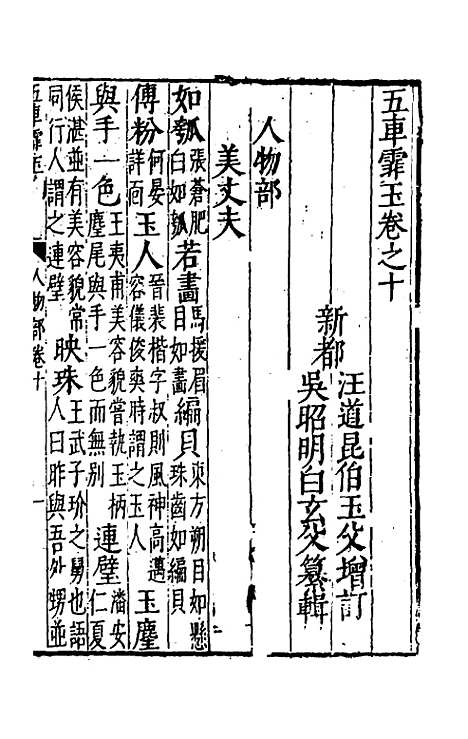 五車霏玉卷之十
新都
汪道昆伯玉父增訂
吳昭明白玄父纂輯
人物部
美丈夫
如瓠張蒼肥白如瓠若畫馬援眉目如畫編貝東方朔目如懸珠齒如編貝
傅粉何晏詳面玉人晉裴楷字叔則風神高邁容儀俊爽時謂之玉人玉麈
與手一色王夷甫美容貌嘗執玉柄麈尾與手一色而無別連璧潘安仁夏
侯湛並有美容貌常同行人謂之連璧映珠王武子玠之舅也語人曰昨與吾外甥並
五車霏玉 人物部卷十 一